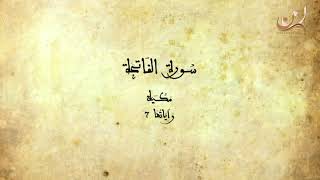 سورة الفاتحة
مكية
واياتها 7